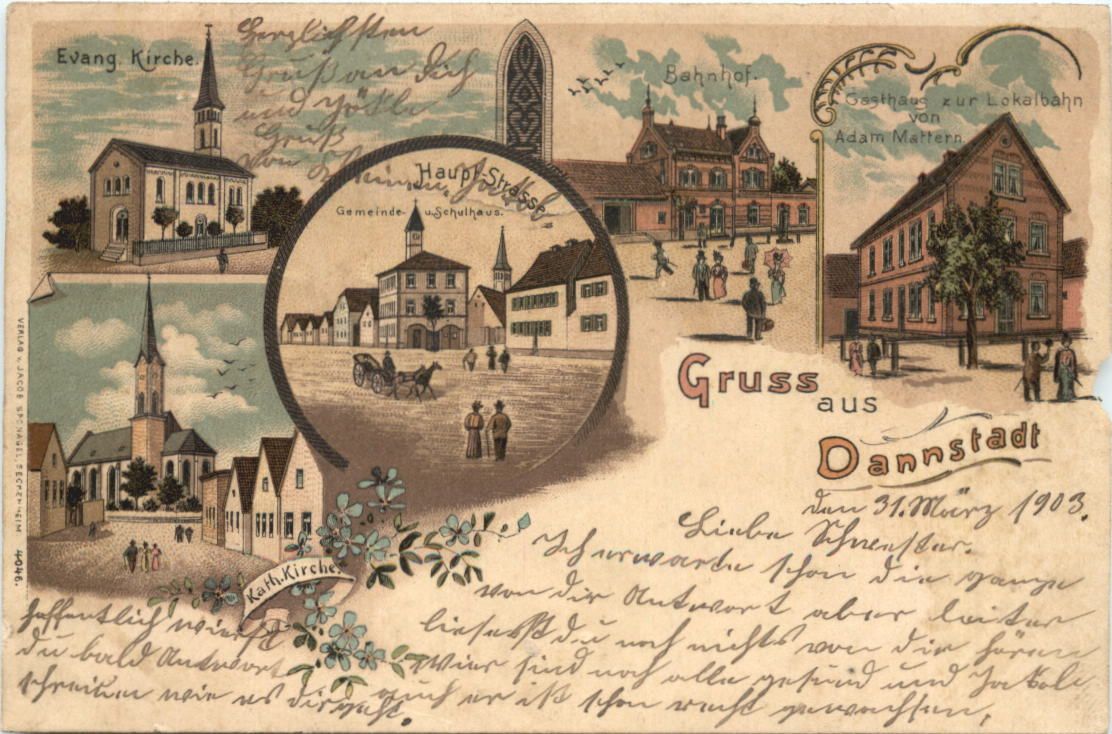 Evang. Kirche.
Herzlichsten
Gruß an Dich
und
Gruß
von
Haupt-Strasse
Gemeinde- u. Schulhaus.
Bahnhof.
Gasthaus zur Lokalbahn
von
Adam Mattern.
Gruss
aus
Dannstadt
VERLAG v. JACOB SPONAGEL, SECKENHEIM 4046.
Kath. Kirche.
den 31. März 1903.
Liebe Schwester.
Ich erwarde schon die ganze
von dir Antwort aber leiter
liesesst du noch nichts von dir hören
Wier sind noch alle gesund und
auch er ist schon recht gewachsen.
Hoffentlich wierst
du bald Antwort
schreiben wie es dir geht.